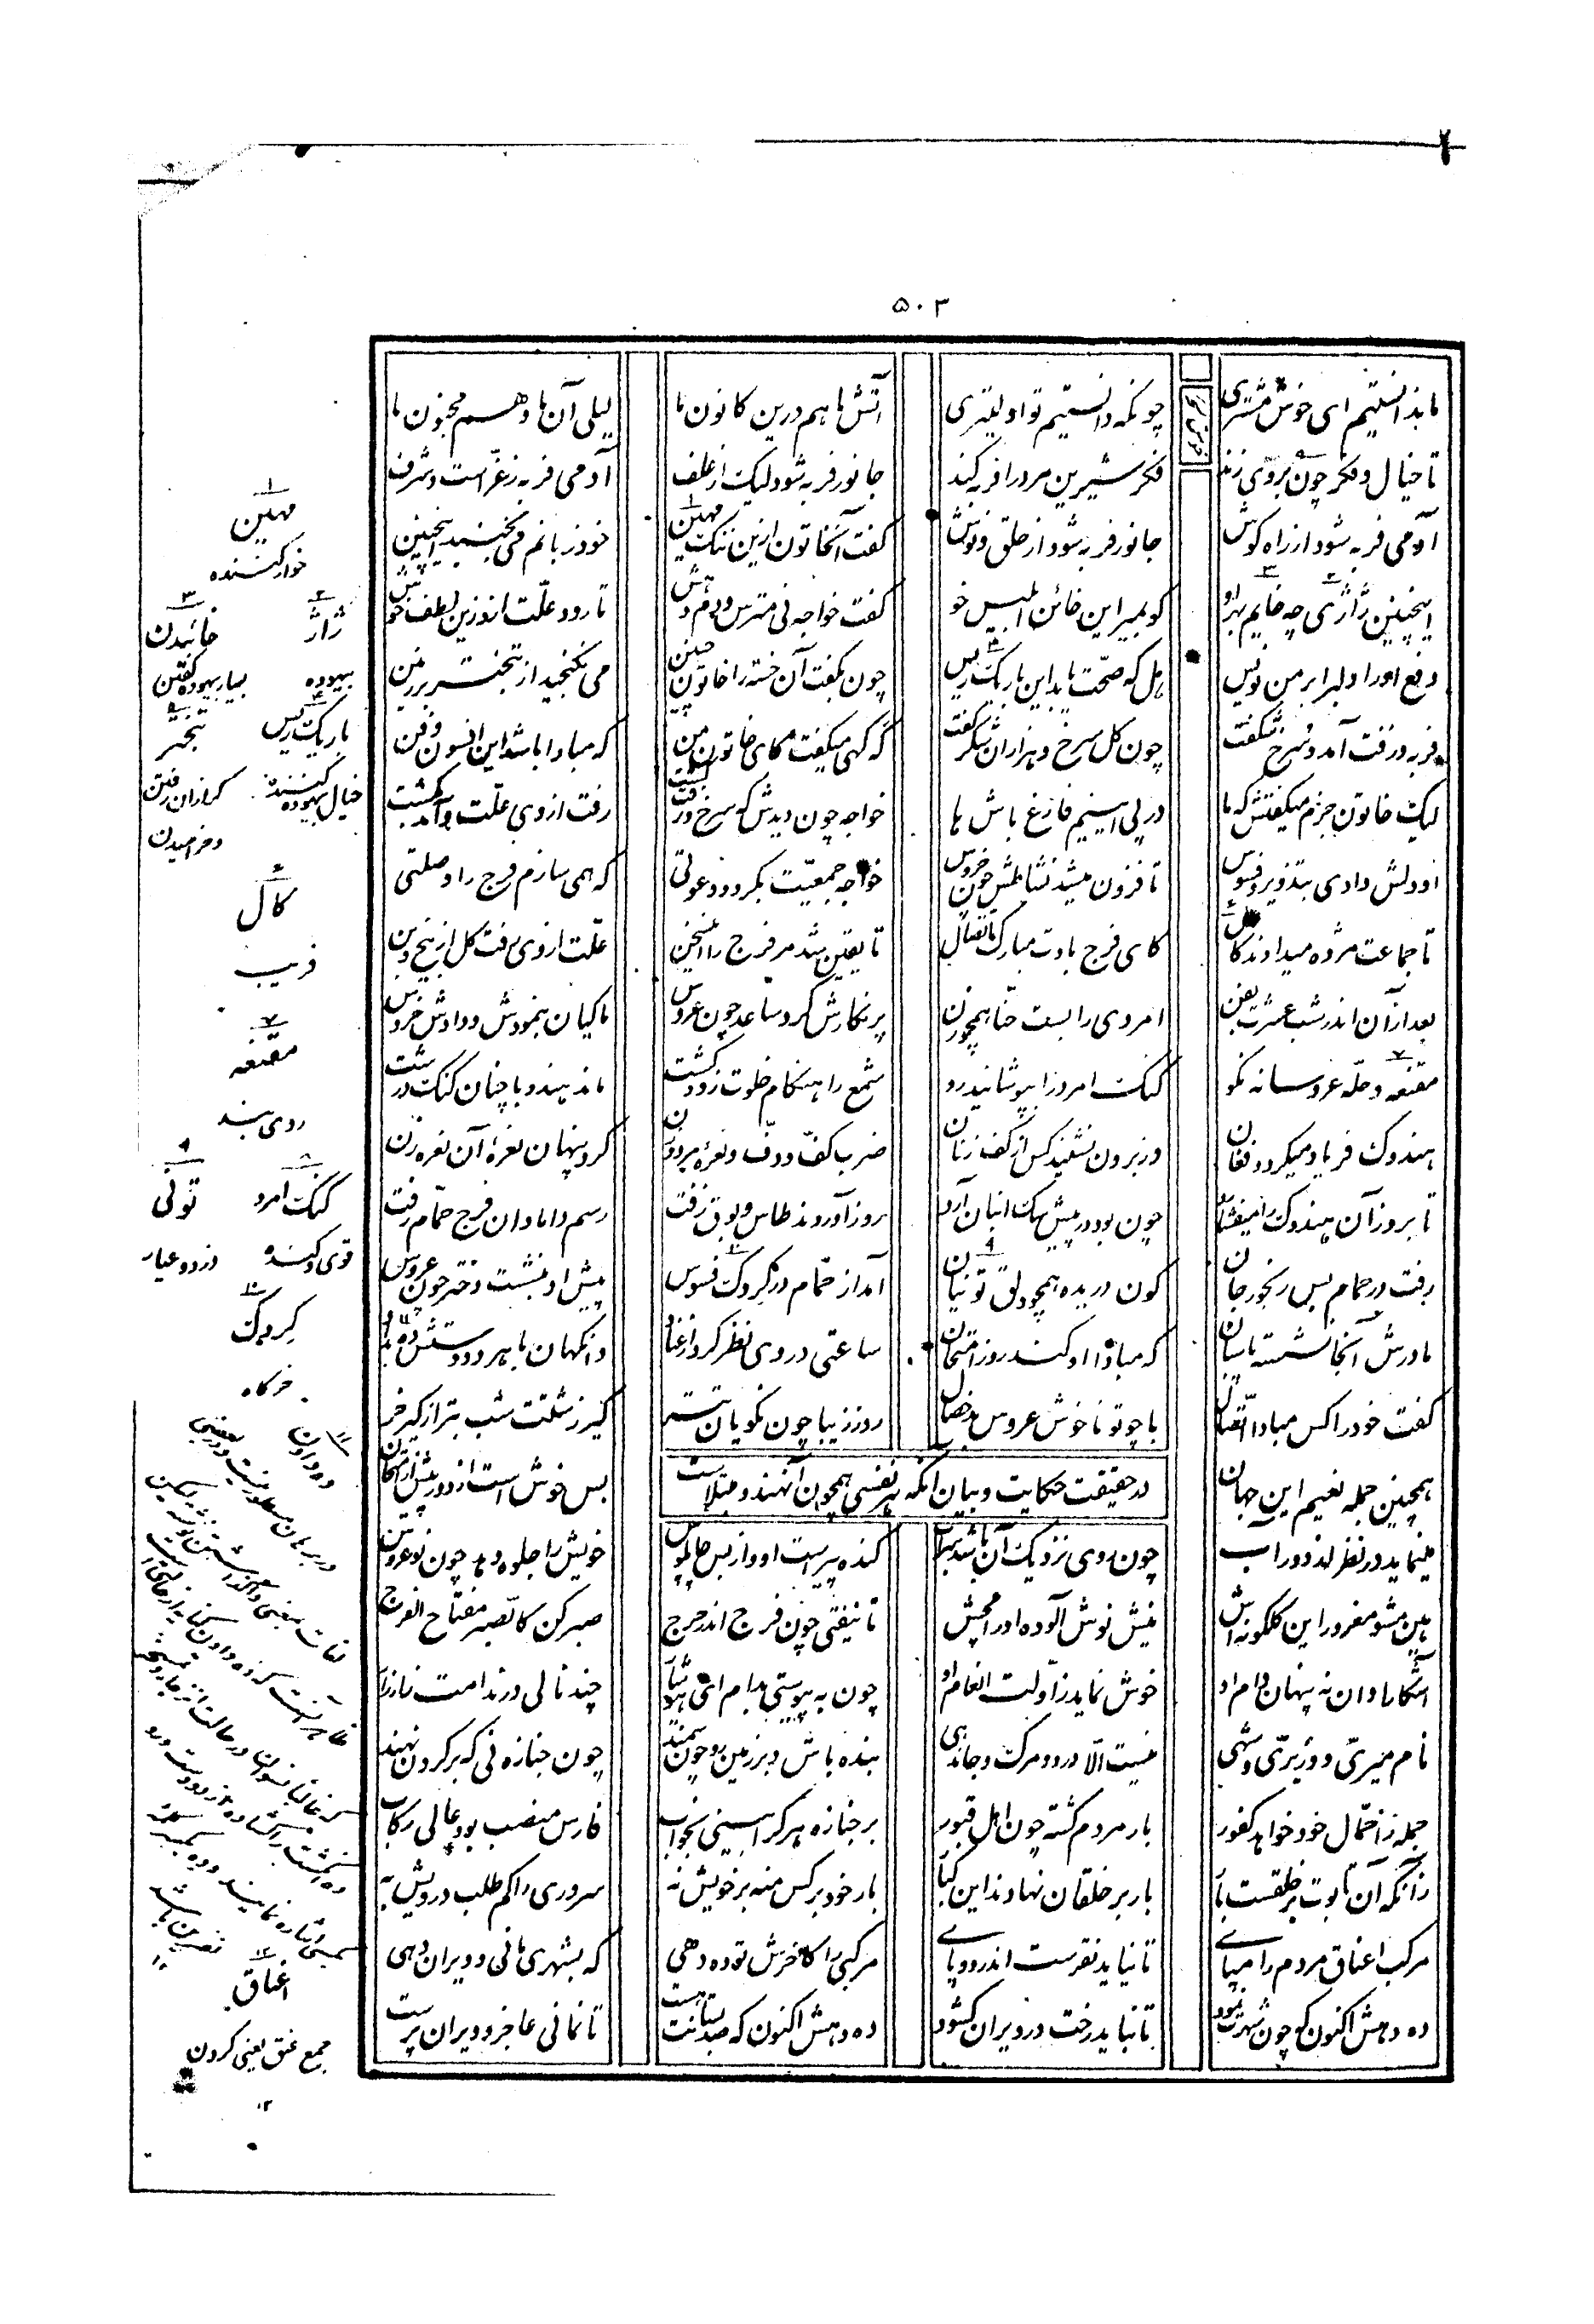 ۵۰۳
ما بدانستیم ای خوش مشتری چونکه دانستیم تو اولیتری آتش ما هم درین کانون ما لیلی آن ما و هم مجنون ما
تا خیال و فکر چون بروی زند فکر شیرین مرد را فربه کند جانور فربه شود لیک از علف آدمی فربه ز عزّ است و شرف
آدمی فربه شود از راه کوش جانور فربه شود از حلق و نوش کفت آنخاتون ازین ننک مهین خود زبانم می بجنبد اینچنین
اینچنین ژاژی چه خایم بهر او کو بمیر این خائن ابلیس خو کفت خواجه نی مترس و دم دهش تا رود علّت از و زین لطف خوش
دفع او را دلبرا بر من نویس هل که صحّت یابد این باریک ریس چون بکفت آن خسته را خاتون چنین می نکنجید از تبختر بر زمین
فربه و زفت آمد و سرخ و شکفت چون کل سرخ و هزاران شکر کفت که کهی میکفت کای خاتون من که مبادا باشد این افسون و فن
لیک خاتون جزم میکفتش که ما در پی اینیم فارغ باش ها خواجه چون دیدش که سرخ و زفت کشت رفت از وی علّت و آمد بکشت
او دلش دادی بتزویر و فسوس تا فزون میشد نشاطش چون خروس خواجه جمعیّت بکرد و دعوتی که همی سازم فرج را وصلتی
تا جماعت مژده میدادند کال کای فرج بادت مبارک اتّصال تا یقین شد مر فرج را اینسخن علّت از وی رفت کل از بیخ و بن
بعد از آن اندر شب عشرت بفن امردی را بست حنّا همچو زن پر نکارش کرد ساعد چون عروس ماکیان بنمودش و دادش خروس
مقنعه و حلّه عروسانه نکو کنک امرد را بپوشانید رو شمع را هنکام خلوت زود کشت ماند هندو با چنان کنک درشت
هندوک فریاد میکرد و فغان از برون نشنید کس از کف زنان ضرب کفّ و دفّ و نعره مرد و زن کرد پنهان نعرهٔ آن نعره زن
تا بروز آن هندوک را میفشارد چون بود در پیش سک انبان آرد روز آوردند طاس و بوق زفت رسم دامادان فرج حمّام رفت
رفت در حمام بس رنجور جان کون دریده همچو دلق تونیان آمد از حمّام در کردک فسوس پیش او بنشست دختر چون عروس
مادرش آنجا نشسته پاسبان که مبادا او کند روز امتحان ساعتی در وی نظر کرد از عناد وانکهان با هر دو دستش ده بداد
کفت خود را کس مبادا اتّصال با چو تو ناخوش عروس بد خصال روز زیبا چون نکویان تتر کیر زشتت شب بتر از کیر خر
در حقیقت حکایت و بیان آنکه هر نفسی همچون آنهندو مبتلاست
همچنین جمله نعیم این جهان بس خوش است از دور پیش از امتحان
مینماید در نظر از دور آب چون روی نزدیک آن باشد سراب کنده پیر است او و از بس چاپلوس خویش را جلوه دهد چون نو عروس
هین مشو مغرور این کلکونه اش نیش نوش آلوده او را مچش تا نیفتی چون فرج اندر حرج صبر کن کالصبر مفتاح الفرج
آشکارا دانه پنهان دام او خوش نماید ز اوّلت انعام او چون به پیوستی بدام ای هوشیار چند نالی در ندامت زار زار
نام میریّ و وزیریّ و شهی نیست الّا درد و مرک و جاندهی بنده باش و بر زمین رو چون سمند چون جنازه نی که بر کردن نهند
جمله را حمّال خود خواهد کفور بار مردم کشته چون اهل قبور بر جنازه هر کرا بینی بخواب فارس منصب بود عالی رکاب
زانکه آن تابوت بر خلقست بار بار بر خلقان نهادند این کبار بار خود بر کس منه بر خویش نه سروری را کم طلب درویش به
مرکب اعناق مردم را مپای تا نیاید نقرست اندر دو پای مرکبی را کاخرش تو ده دهی که بشهری مانی و ویران دهی
ده دهش اکنون که چون شهرت نمود تا نباید رخت در ویران کشود ده دهش اکنون که صد بستانت هست تا نمانی عاجز و ویران پرست
۱ مهین
خوار کننده
۲ ژاژ
بیهوده
۳ خائیدن
بسیار بیهوده کفتن
۴ باریک ریس
خیال بیهوده کننده
۵ تبختر
کرازان رفتن
و خرامیدن
۶ کال
فریب
۷ مقنعه
روی بند
۸ کنک امرد
قوی و کنده
۹ تونی
دزد و عیار
۱۰ کردک
خرکاه
۱۱ ده دادن
۱۲ اعناق
جمع عنق یعنی کردن
۱۲